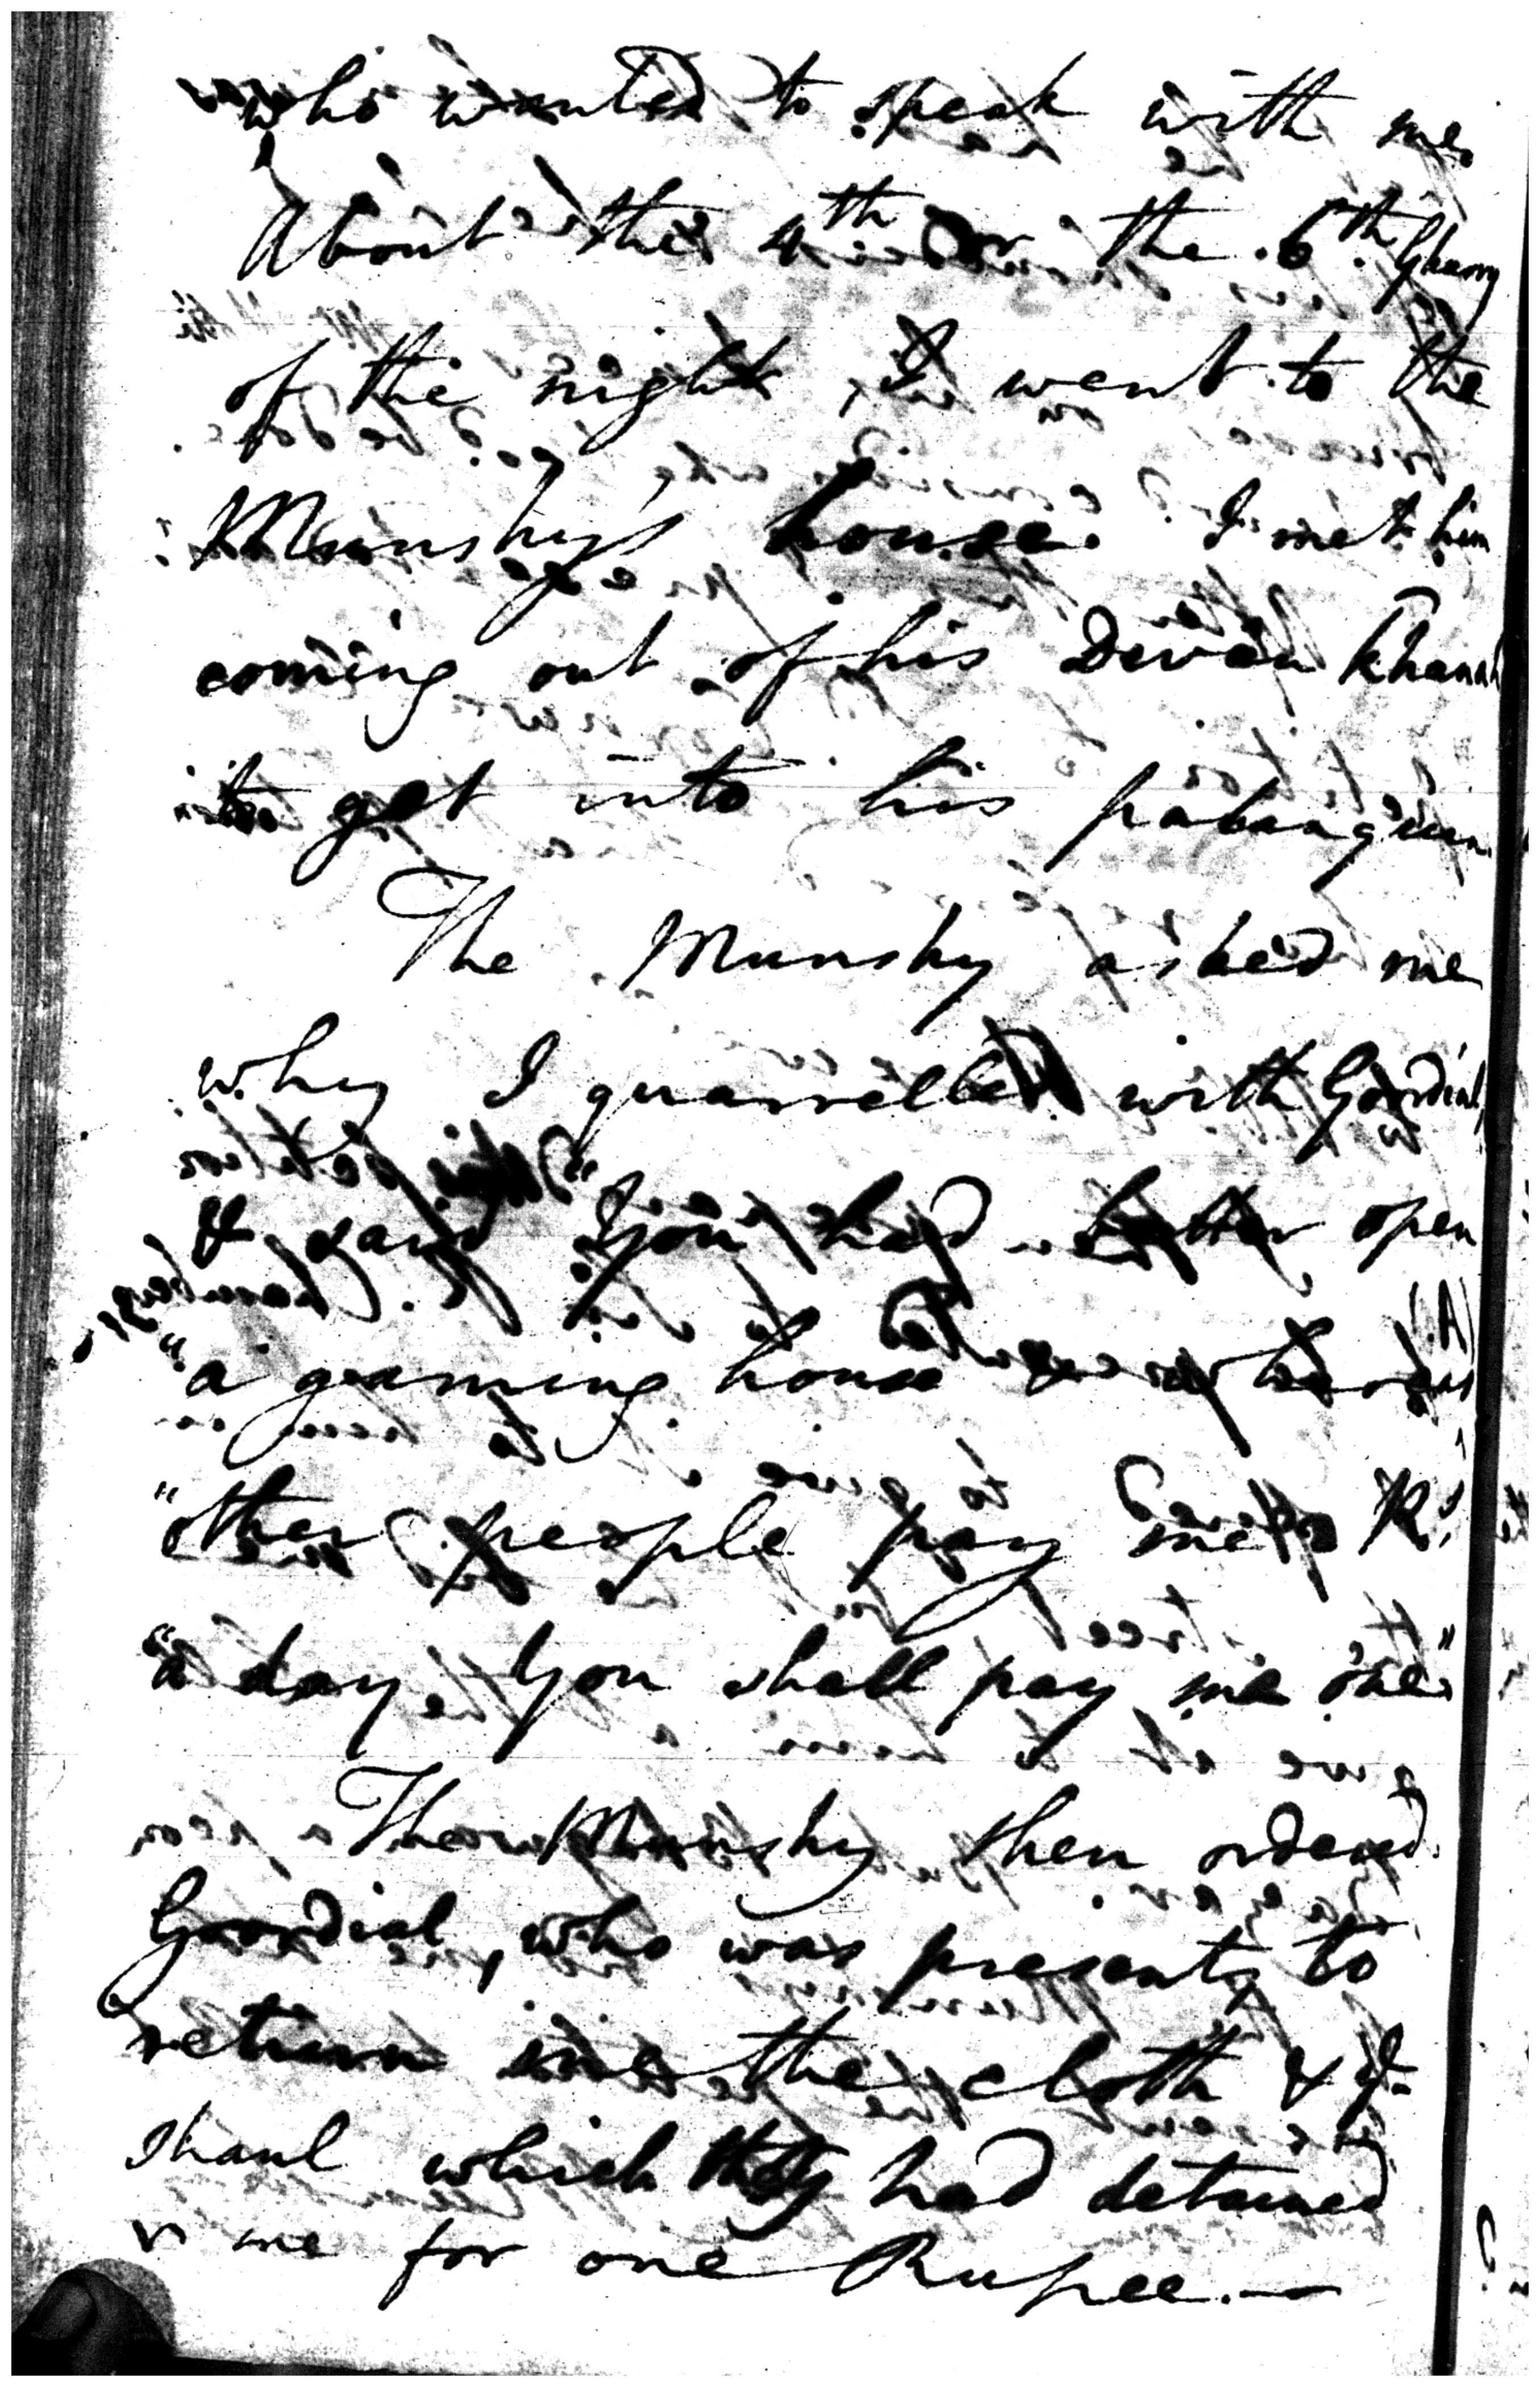 who wanted to speak with me.
About the 4th or the 6th Gharry
of the night, I went to the
Munshy's house. I met him
coming out of his Devan Khanah
to get into his palanquin.
The Munshy asked me
why I quarrelled with Goordial
& said "you had better open
"a gaming house
"other people pay me R.s
"a day. You shall pay me one."
The Munshy then ordered
Goordial, who was present, to
return me the cloth &
shaul which they had detained
me for one Rupee.—